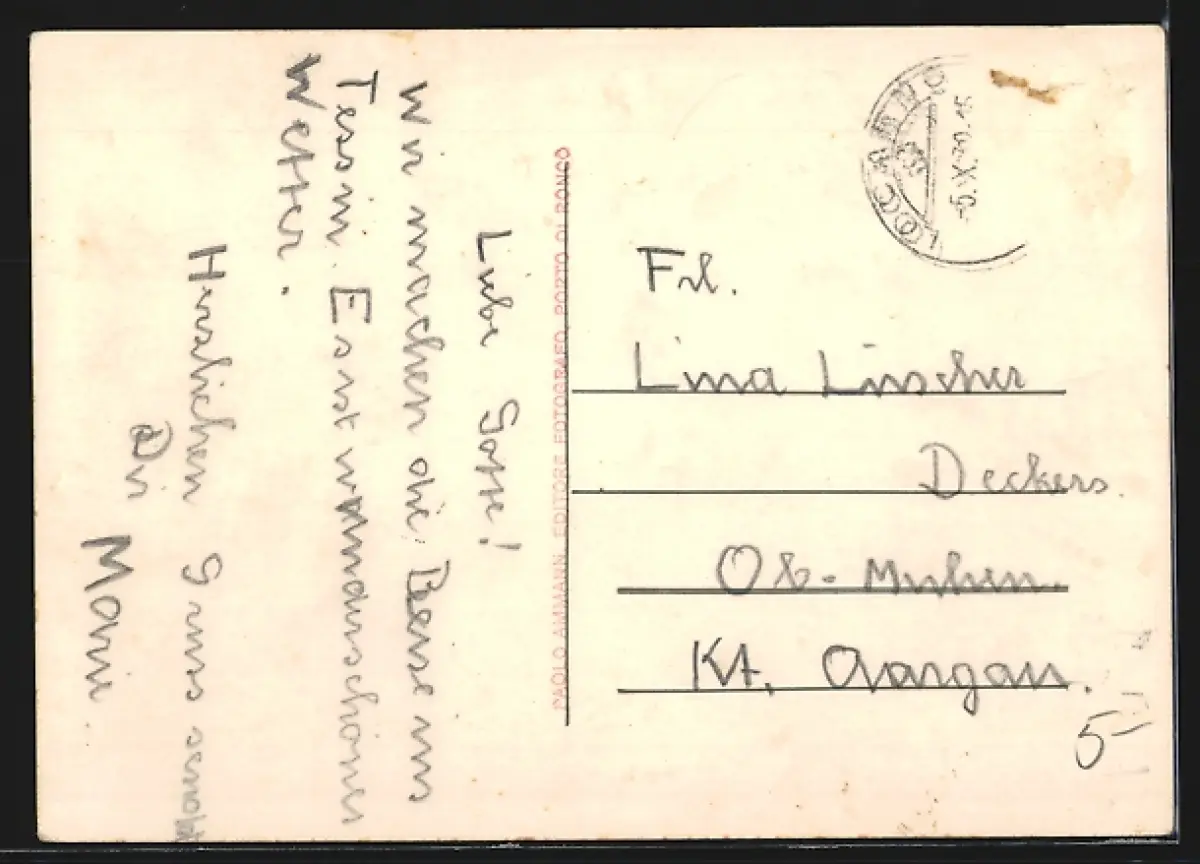 Liebe Gotte!
Wir machen die Reise ins
Tessin. Es ist wunderschönes
Wetter.
Herzlichen Gruss
Dir
Marie
PAOLO AMMANN, EDITORE FOTOGRAFO, PORTO DI RONCO
LOCARNO
Frl.
Lina Lüscher
Deckers.
Ob-Muhen.
Kt. Aargau.
5-